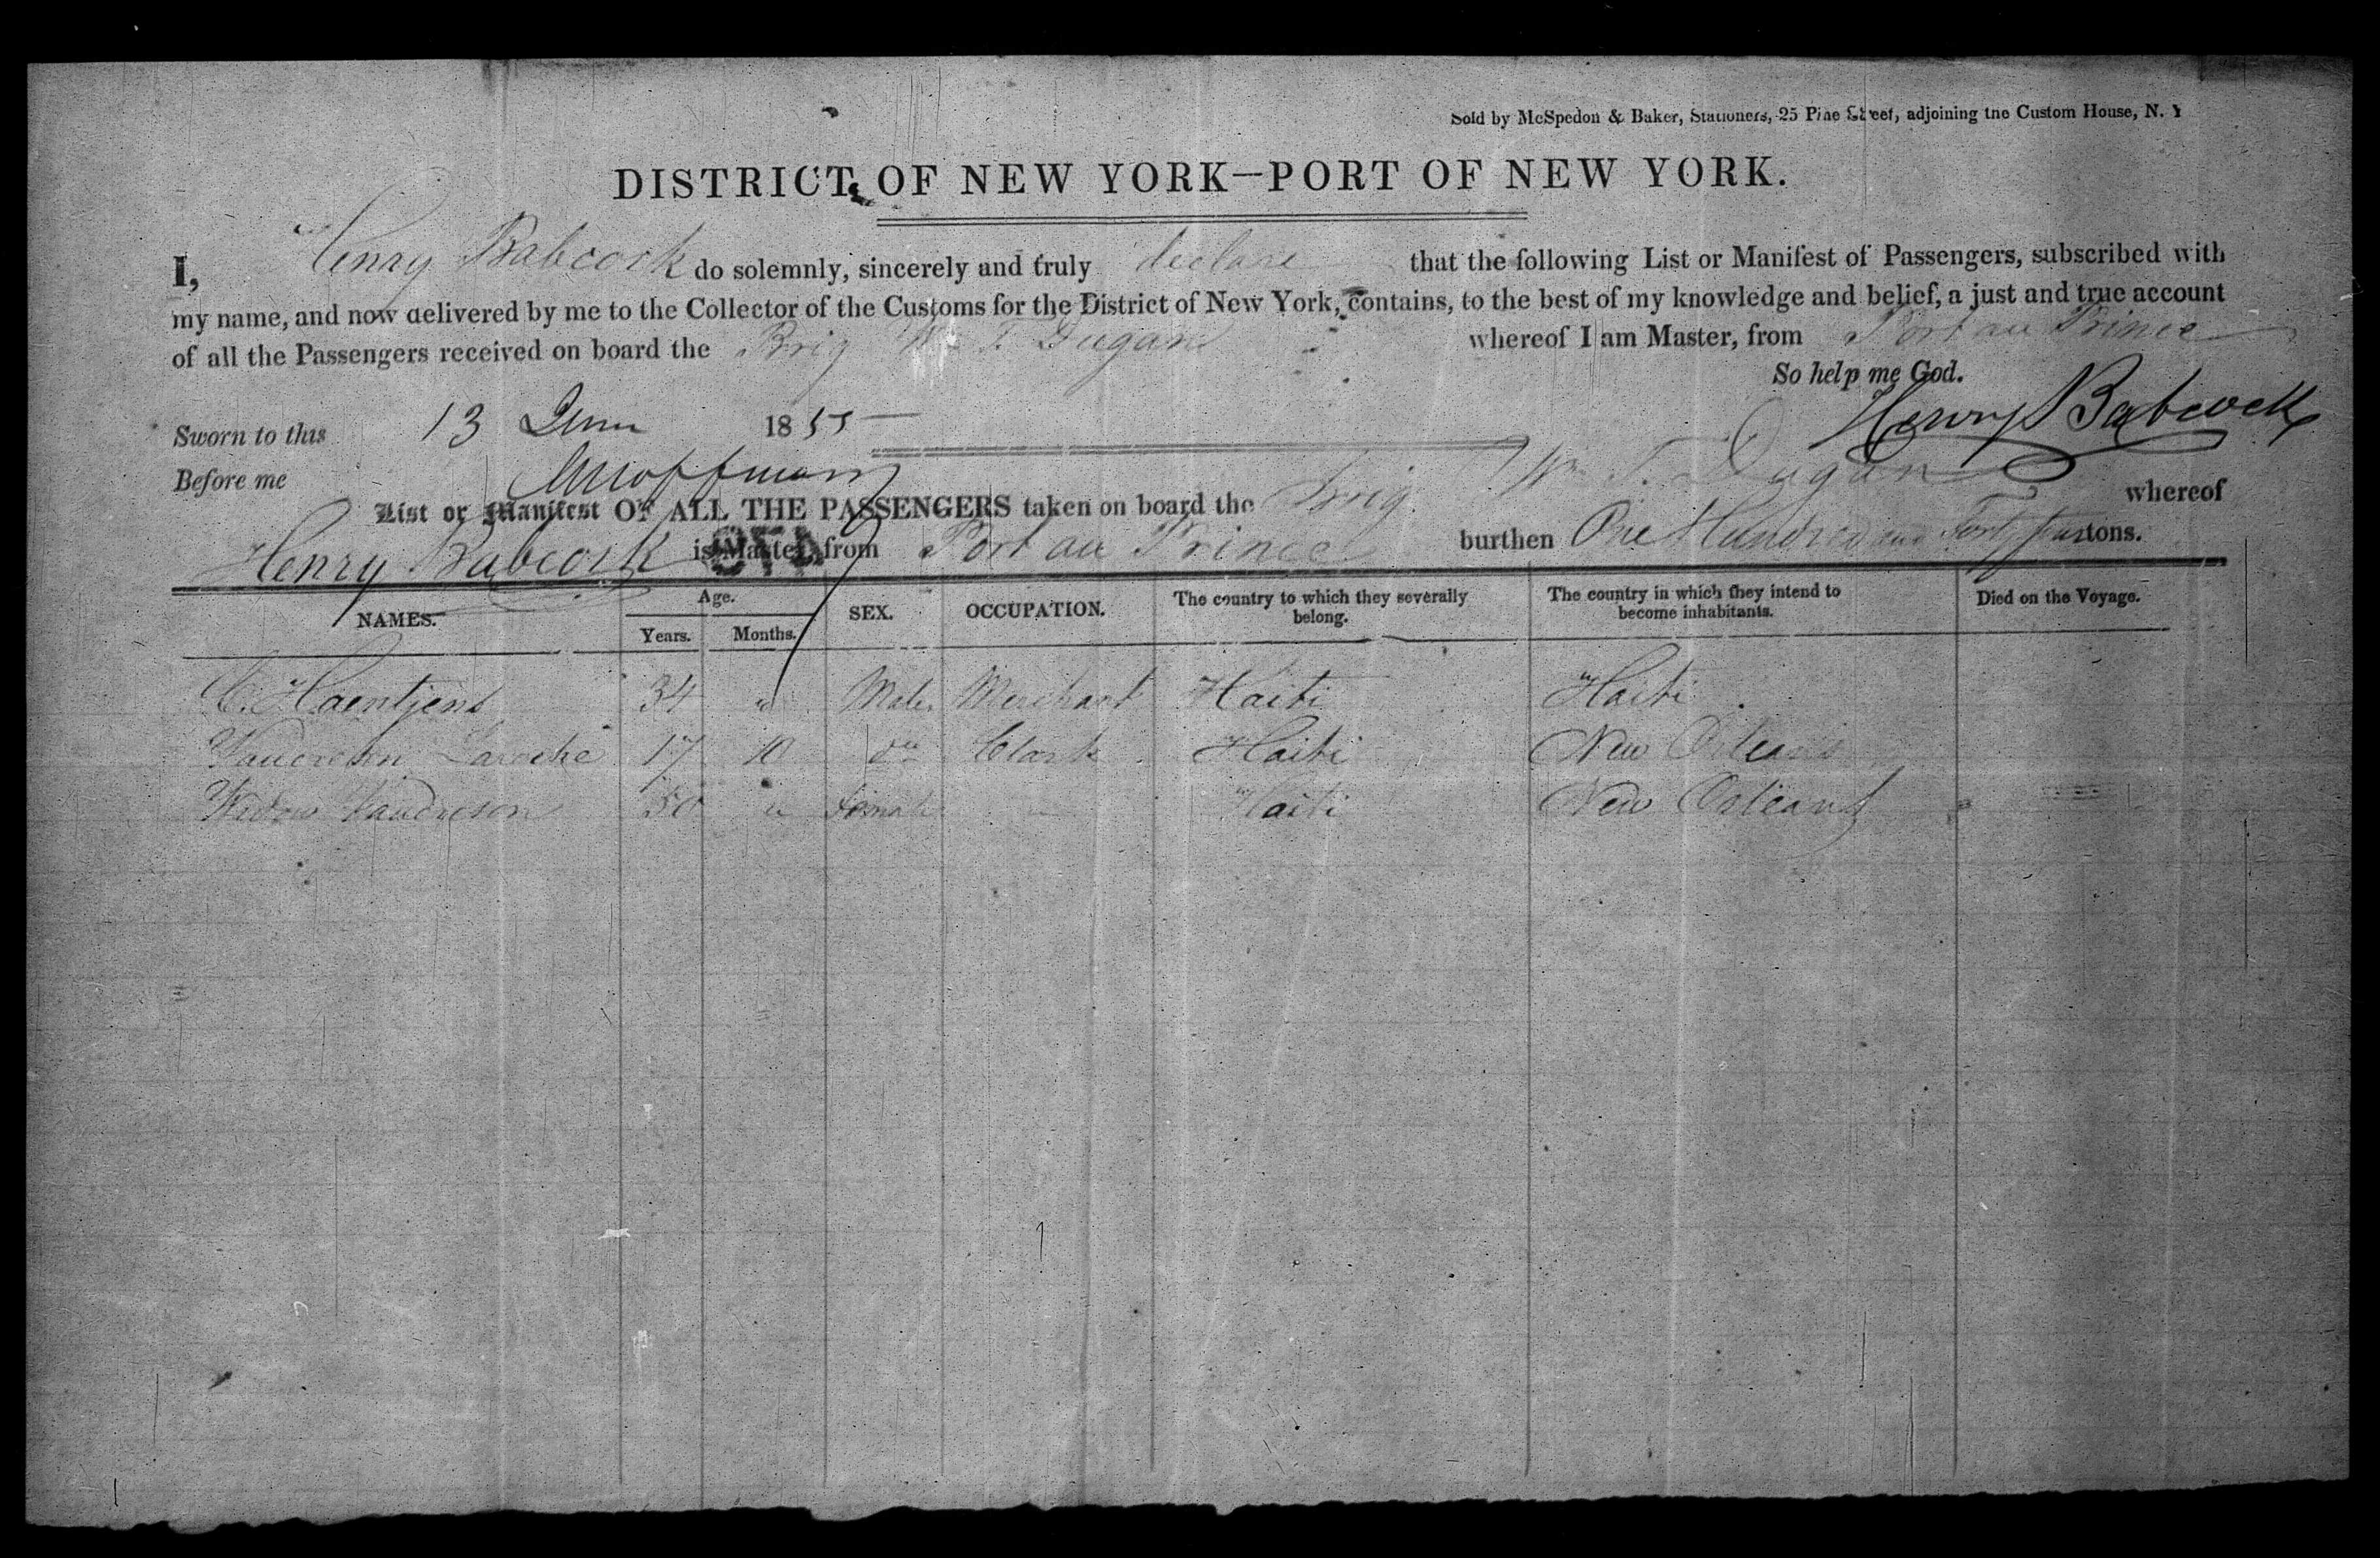 Sold by McSpedon & Baker, Stationers, 25 Pine Street, adjoining the Custom House, N. Y
DISTRICT OF NEW YORK—PORT OF NEW YORK.
I, Henry Babcock do solemnly, sincerely and truly declare that the following List or Manifest of Passengers, subscribed with
my name, and now delivered by me to the Collector of the Customs for the District of New York, contains, to the best of my knowledge and belief, a just and true account
of all the Passengers received on board the Brig Wm T. Dugan whereof I am Master, from Port au Prince
So help me God.
Sworn to this 13 June 1855
Henry Babcock
Before me
List or Manifest OF ALL THE PASSENGERS taken on board the Brig Wm T. Dugan whereof
Henry Babcock is Master, from Port au Prince burthen One Hundred and Forty four tons.
NAMES. Age. Years. Months. SEX. OCCUPATION. The country to which they severally belong. The country in which they intend to become inhabitants. Died on the Voyage.
C. Haentjens 34 " Male Merchant Haiti Haiti
Laroche 17 10 do Clark Haiti New Orleans
Widow Vaudreson 50 " Female Haiti New Orleans